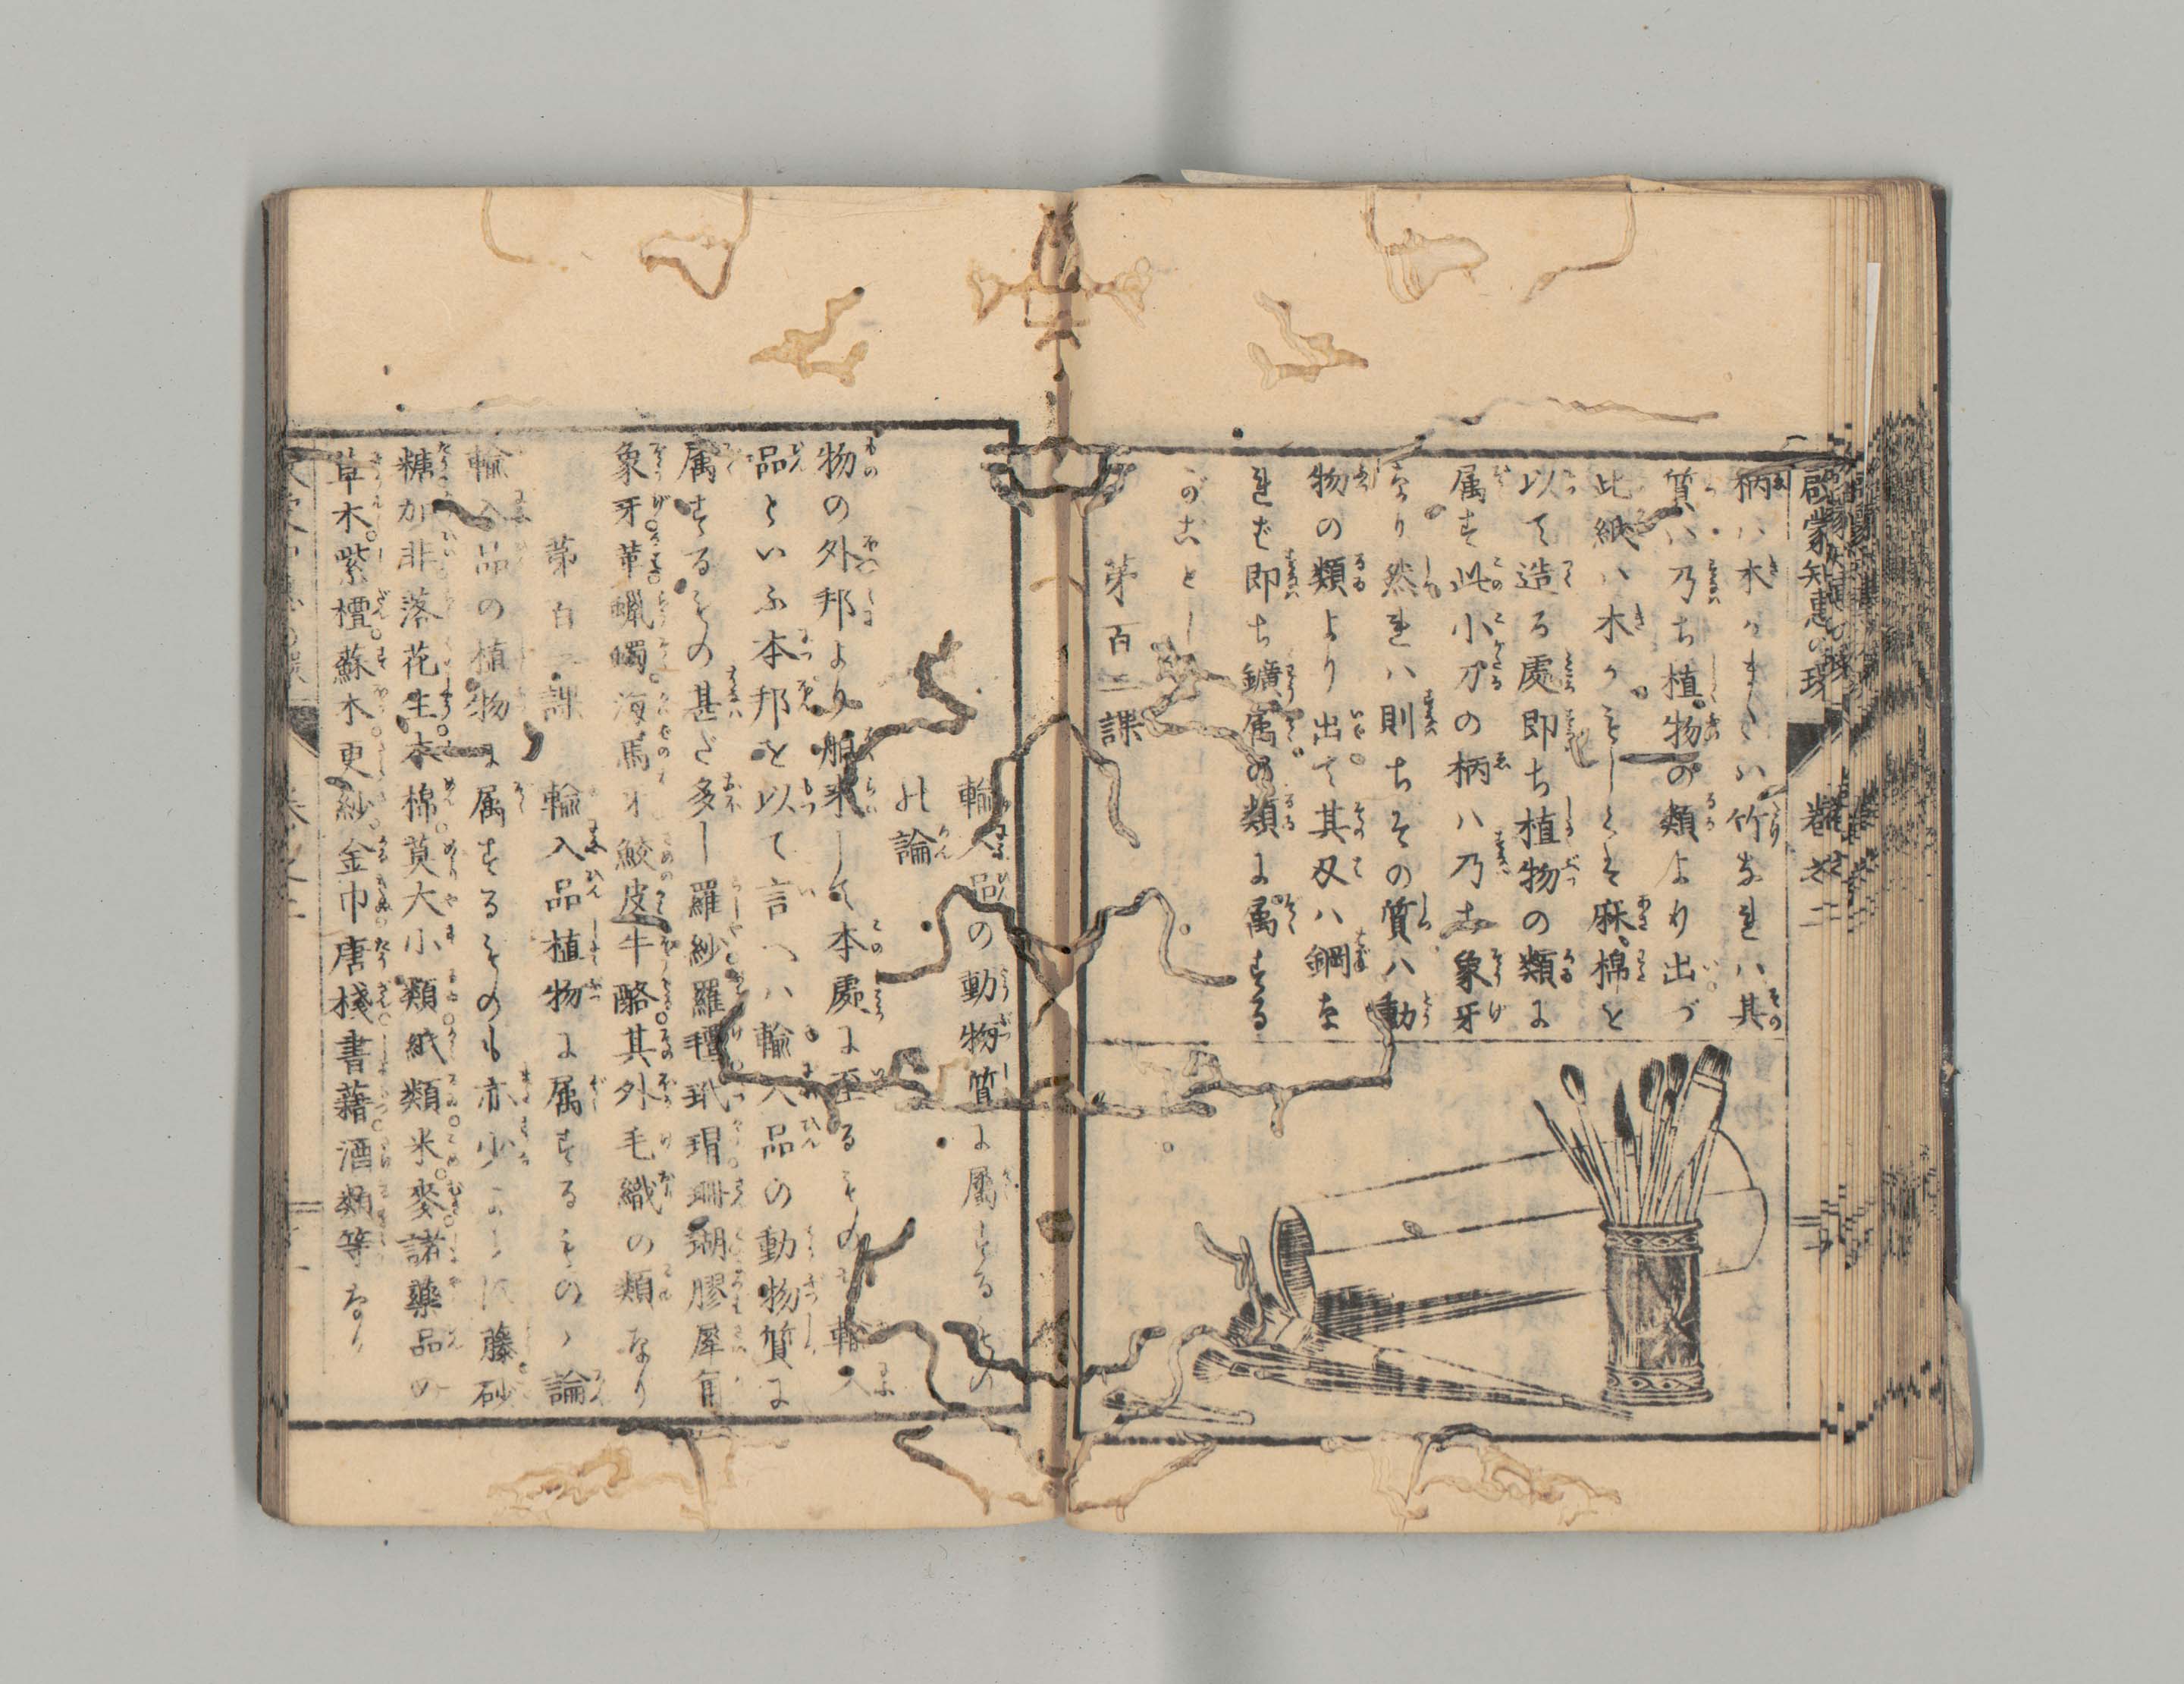 啟蒙知恵の環 卷之二
柄ハ木カまたハ竹なれハ其
質ハ乃ち植物の類より出づ
此紙ハ木カもしくそ麻棉を
以て造る處即ち植物の類に
属す此小刀の柄ハ乃ち象牙
なり然れハ則ちその質ハ動
物の類より出て其刄ハ鋼な
れば即ち鑛属の類に属する
がごとし
第百二課
輸入品の動物質に属するもの
の論
物の外邦より舶来して本處に至るもの 輸入
品といふ本邦を以て言へハ輸入品の動物質に
属するもの甚だ多し羅紗羅氊玳瑁珊瑚膠犀角
象牙革蠟燭海馬牙鮫皮牛酪其外毛織の類なり
第百 課 輸入品植物に属するもの 論
輸入品の植物に属するものも亦少 藤砂
糖加非落花生木棉茣大小類紙類米麥諸藥品の
草木紫檀蘇木更紗金巾唐棧書藉酒類等なり